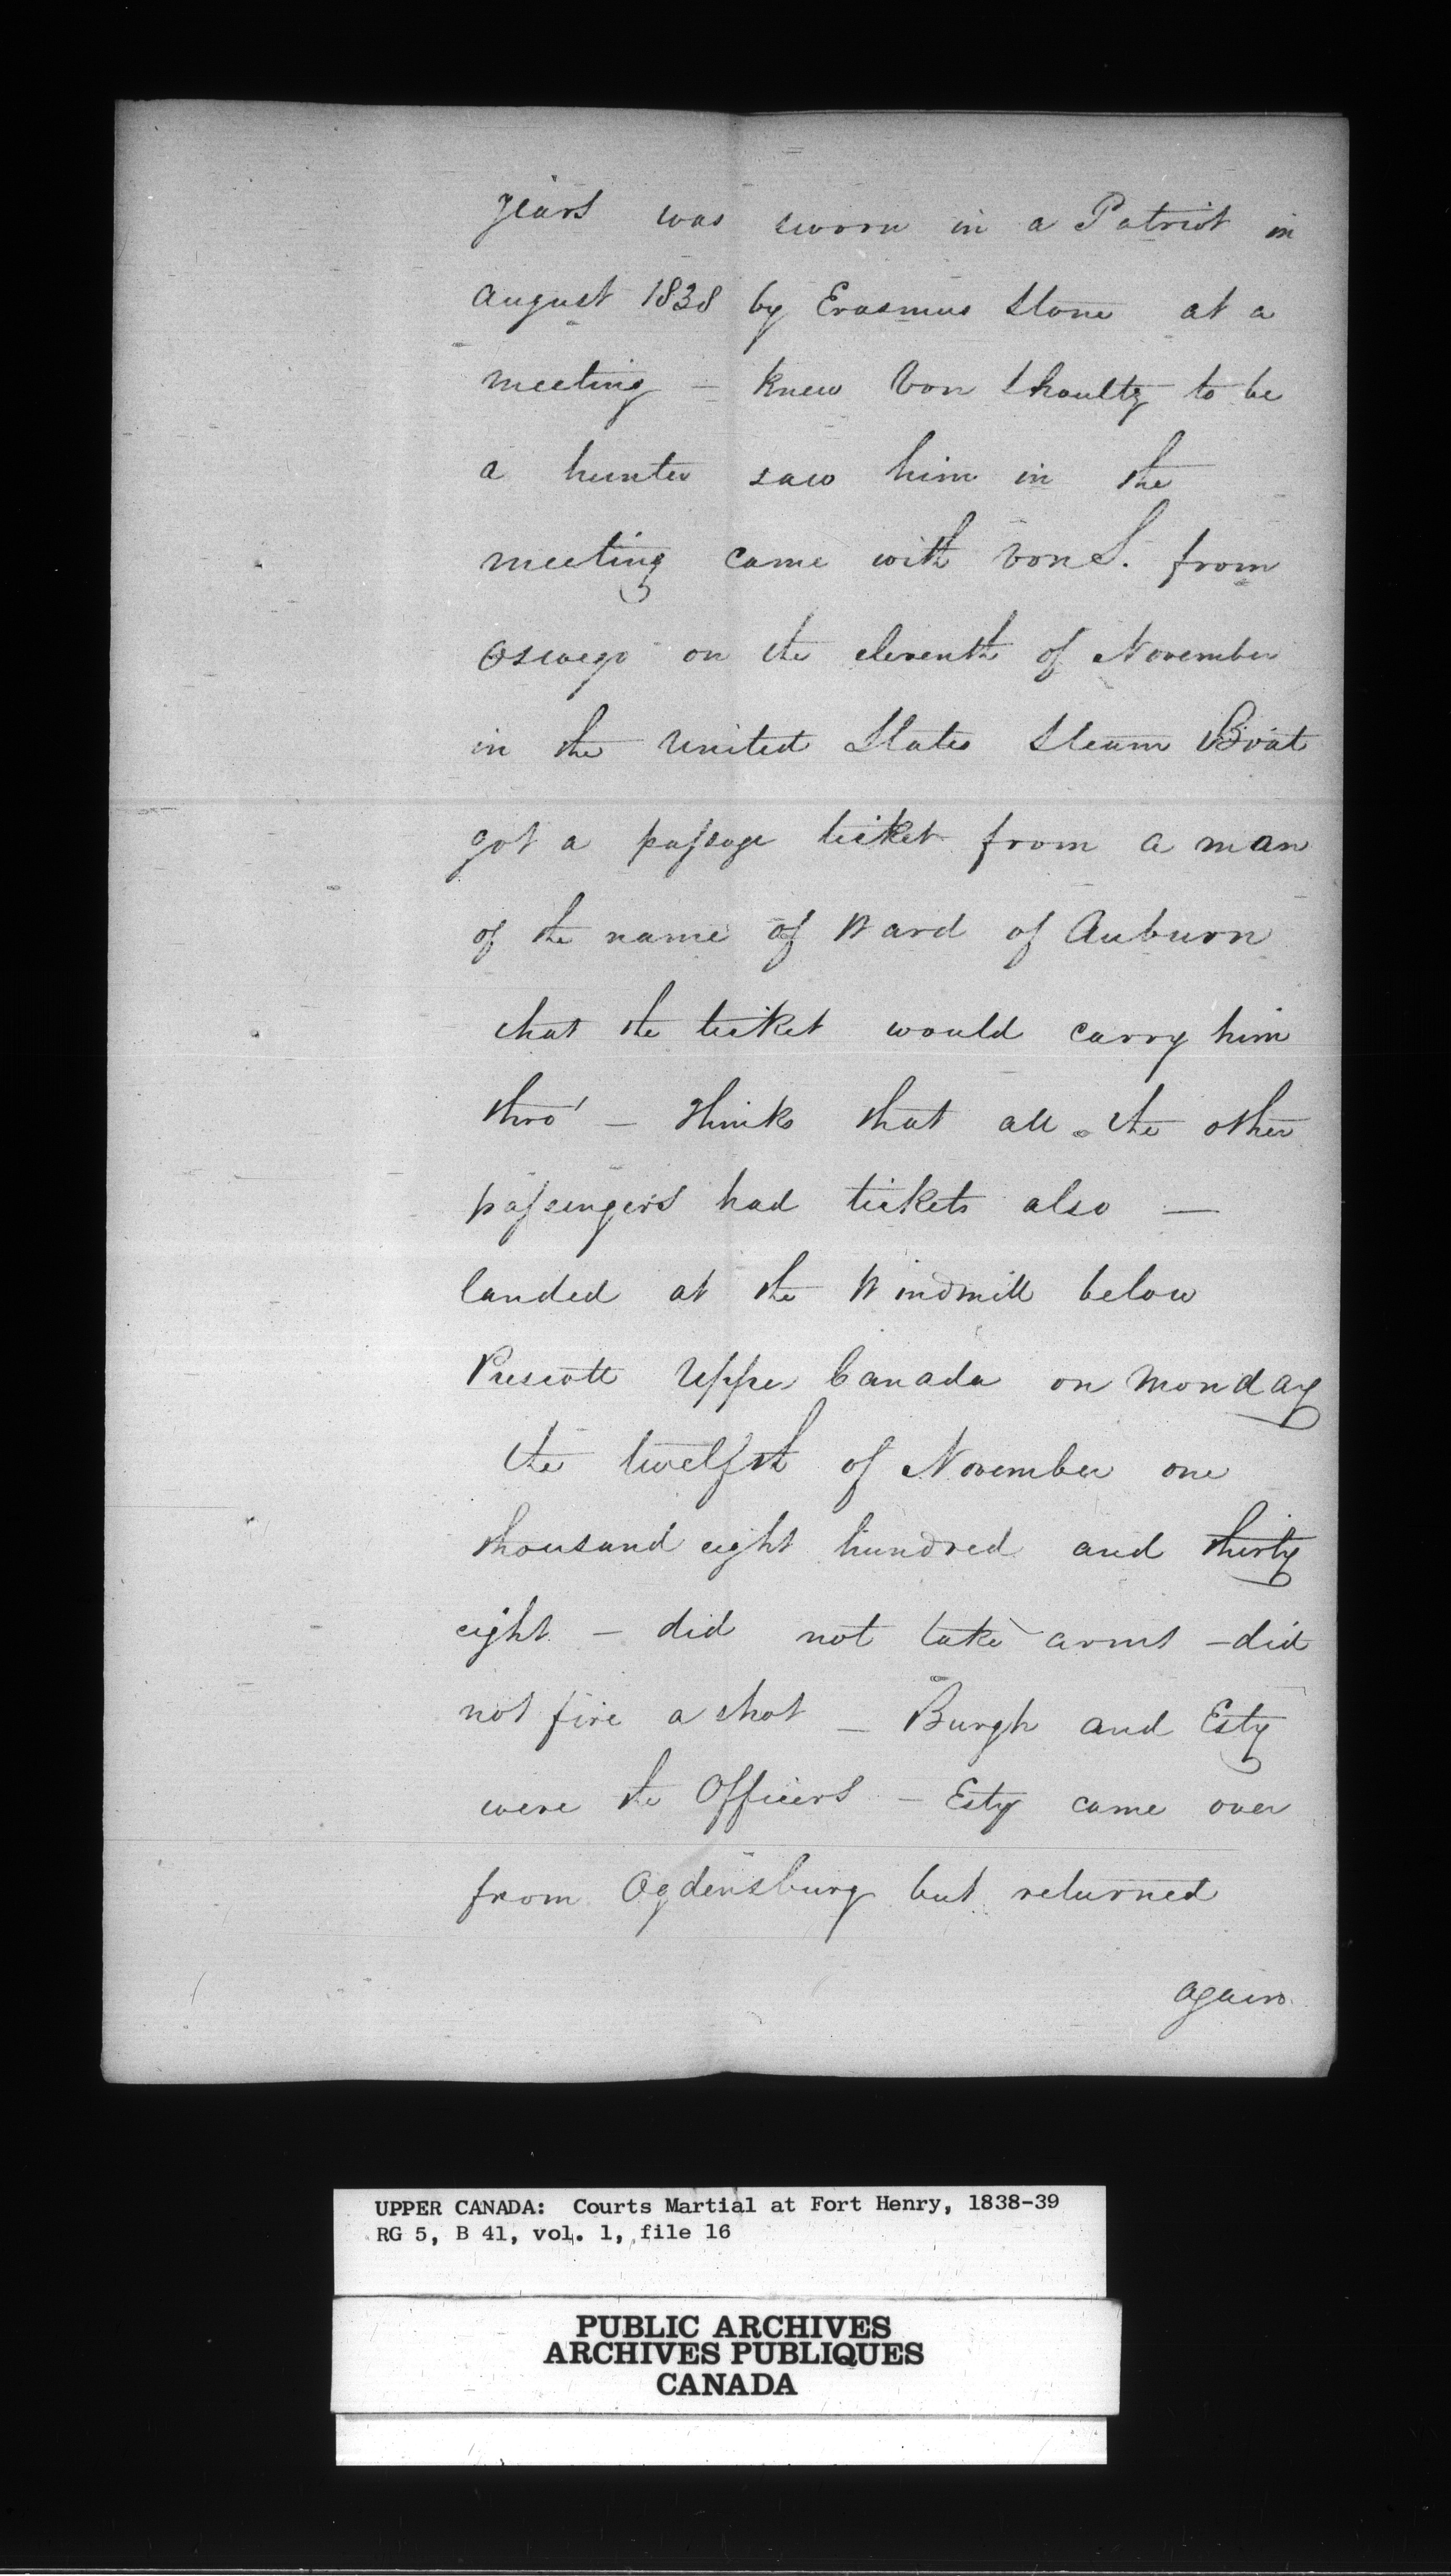 years was sworn in a Patriot in
August 1838 by Erasmus Stone at a
meeting – knew Von Shoultz to be
a hunter saw him in the
meeting came with von S. from
Oswego on the eleventh of November
in the United States Steam Boat
got a passage ticket from a man
of the name of Ward of Auburn
that the ticket would carry him
thro' – thinks that all the other
passengers had tickets also –
landed at the Windmill below
Prescott Upper Canada on Monday
the twelfth of November one
thousand eight hundred and thirty
eight – did not take arms – did
not fire a shot – Burgh and Esty
were the Officers – Esty came over
from Ogdensburg but returned
again
UPPER CANADA: Courts Martial at Fort Henry, 1838-39
RG 5, B 41, vol. 1, file 16
PUBLIC ARCHIVES
ARCHIVES PUBLIQUES
CANADA